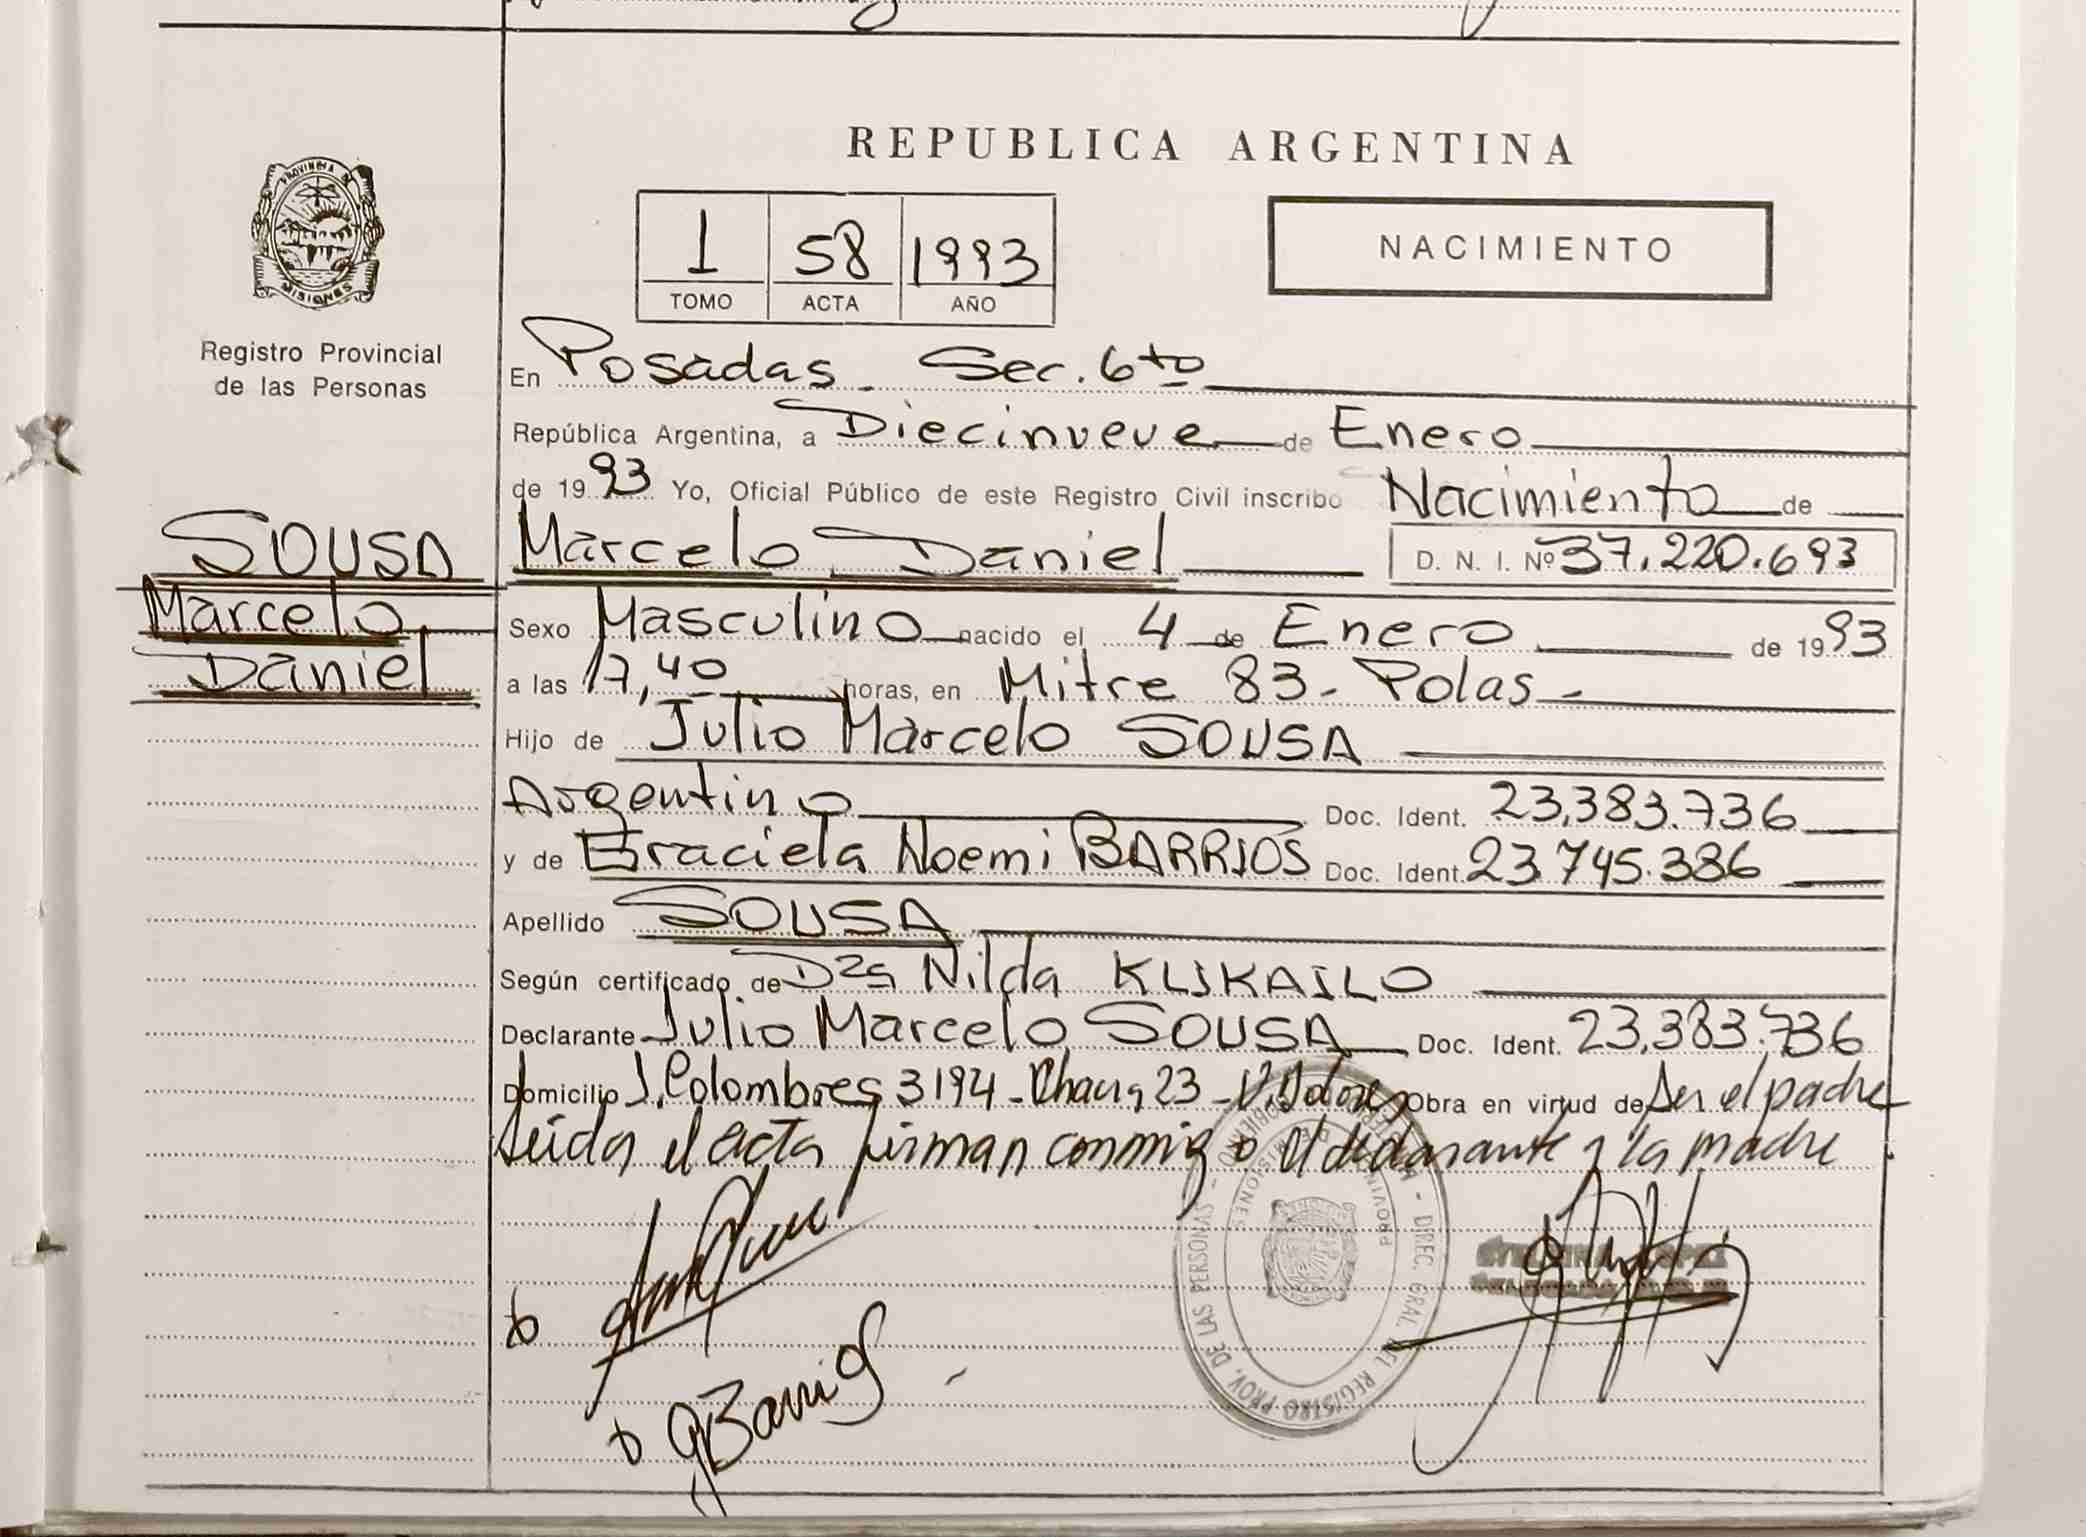 REPUBLICA ARGENTINA
PROVINCIA DE
MISIONES
Registro Provincial
de las Personas
1 58 1993
TOMO ACTA AÑO
NACIMIENTO
En Posadas - Sec. 6to
República Argentina, a Diecinueve de Enero
de 1993 Yo, Oficial Público de este Registro Civil inscribo Nacimiento de
SOUSA
Marcelo
Daniel
Marcelo Daniel D. N. I. Nº 37.220.693
Sexo Masculino nacido el 4 de Enero de 1993
a las 17,40 horas, en Mitre 83 - Polas -
Hijo de Julio Marcelo SOUSA
Argentino Doc. Ident. 23,383.736
y de Graciela Noemi BARRIOS Doc. Ident. 23.745.386
Apellido SOUSA
Según certificado de Dra Nilda KLIKAILO
Declarante Julio Marcelo SOUSA Doc. Ident. 23,383.736
Domicilio J. Colombres 3194 - Chacra 23 - Obra en virtud de Ser el padre
Leida el acta firman conmigo el declarante y la madre
GBarrios
DIREC. GRAL. DEL REGISTRO PROV. DE LAS PERSONAS -
PROVINCIA DE MISIONES